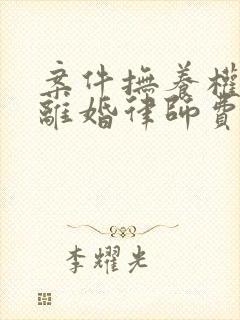 案件撫養權
離婚律師費
李耀光